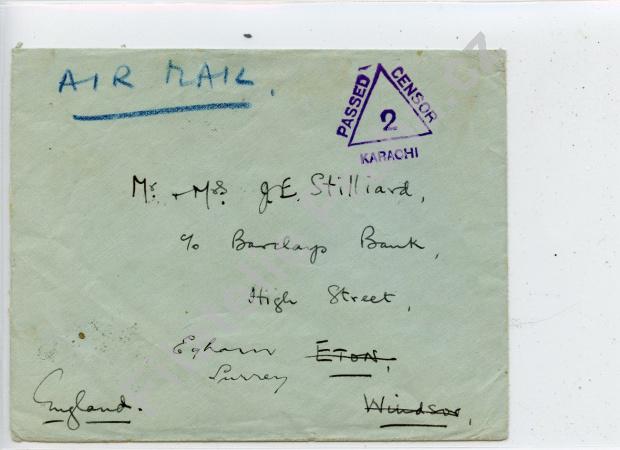 AIR MAIL.
PASSED CENSOR
2
KARACHI
Mr. + Mrs. J.E. Stilliard,
c/o Barclays Bank,
High Street,
Egham ETON,
Surrey
England. Windsor,